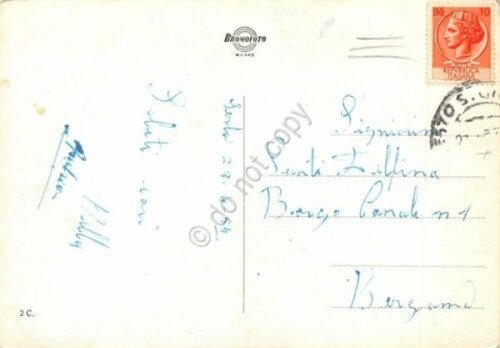 BROMOFOTO
MILANO
10
REPUBBLICA
ITALIANA
Sesto 28.
Saluti cari
Willy
Signorina
Santi Delfina
Borgo Canale n 1
Bergamo
2 C.
do not copy